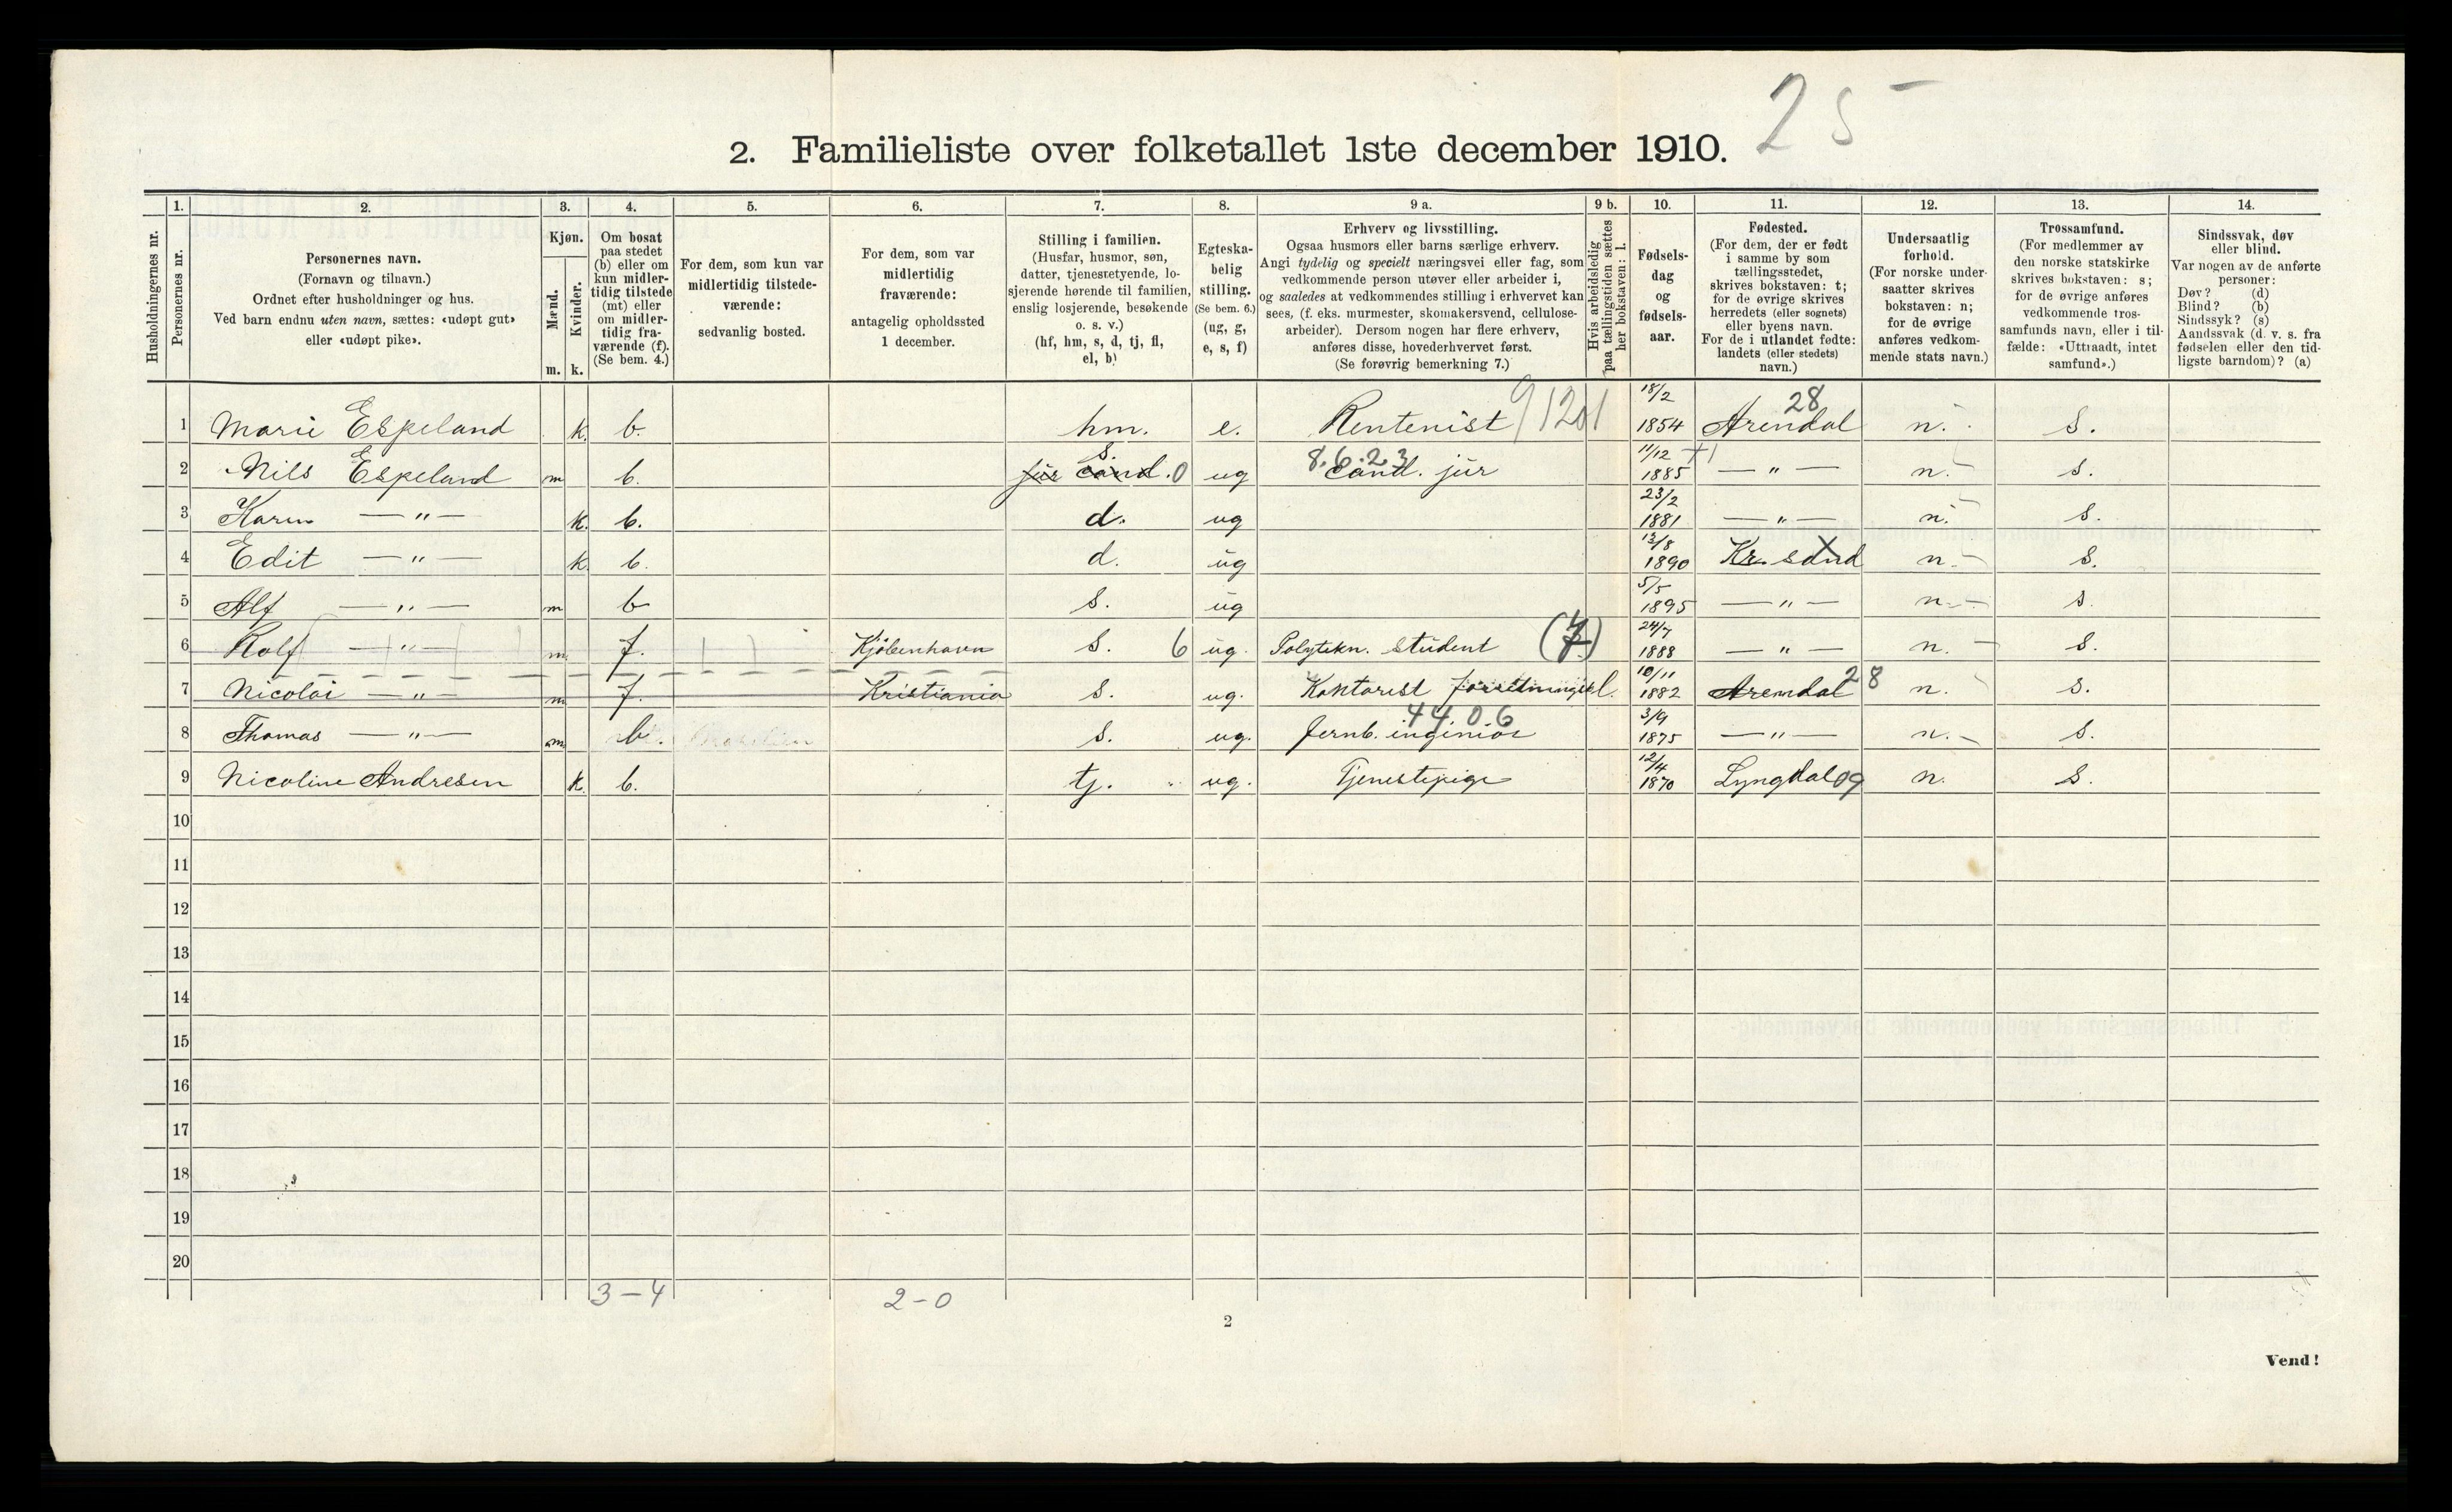 25
2. Familieliste over folketallet 1ste december 1910.
1. 2. 3. 4. 5. 6. 7. 8. 9 a. 9 b. 10. 11. 12. 13. 14.
Husholdningernes nr.
Personernes nr.
Personernes navn.
(Fornavn og tilnavn.)
Ordnet efter husholdninger og hus.
Ved barn endnu uten navn, sættes: «udøpt gut»
eller «udøpt pike».
Kjøn.
Mænd.
Kvinder.
m. k.
Om bosat
paa stedet
(b) eller om
kun midler-
tidig tilstede
(mt) eller
om midler-
tidig fra-
værende (f).
(Se bem. 4.)
For dem, som kun var
midlertidig tilstede-
værende:
sedvanlig bosted.
For dem, som var
midlertidig
fraværende:
antagelig opholdssted
1 december.
Stilling i familien.
(Husfar, husmor, søn,
datter, tjenestetyende, lo-
sjerende hørende til familien,
enslig losjerende, besøkende
o. s. v.)
(hf, hm, s, d, tj, fl,
el, b)
Egteska-
belig
stilling.
(Se bem. 6.)
(ug, g,
e, s, f)
Erhverv og livsstilling.
Ogsaa husmors eller barns særlige erhverv.
Angi tydelig og specielt næringsvei eller fag, som
vedkommende person utøver eller arbeider i,
og saaledes at vedkommendes stilling i erhvervet kan
sees, (f. eks. murmester, skomakersvend, cellulose-
arbeider). Dersom nogen har flere erhverv,
anføres disse, hovederhvervet først.
(Se forøvrig bemerkning 7.)
Hvis arbeidsledig
paa tællingstiden sættes
her bokstaven: l.
Fødsels-
dag
og
fødsels-
aar.
Fødested.
(For dem, der er født
i samme by som
tællingsstedet,
skrives bokstaven: t;
for de øvrige skrives
herredets (eller sognets)
eller byens navn.
For de i utlandet fødte:
landets (eller stedets)
navn.)
Undersaatlig
forhold.
(For norske under-
saatter skrives
bokstaven: n;
for de øvrige
anføres vedkom-
mende stats navn.)
Trossamfund.
(For medlemmer av
den norske statskirke
skrives bokstaven: s;
for de øvrige anføres
vedkommende tros-
samfunds navn, eller i til-
fælde: «Uttraadt, intet
samfund».)
Sindssvak, døv
eller blind.
Var nogen av de anførte
personer:
Døv? (d)
Blind? (b)
Sindssyk? (s)
Aandssvak (d. v. s. fra
fødselen eller den tid-
ligste barndom)? (a)
18/2 28
1 Marie Espeland k. b. hm. e. Rentenist 9120 1854 Arendal n. s.
s. 8.6.2.3 11/12
2 Nils Espeland m b. jur cand. 0 ug Cand. jur 1885 — " — n. s.
23/2
3 Karen — " — k. b. d. ug 1881 — " — n. s.
13/8
4 Edit — " — k. b. d. ug 1890 Kr. sand n. s.
5/5
5 Alf — " — m b s. ug 1895 — " — n. s.
24/7
6 Rolf — " — m f. Kjöbenhavn s. 6 ug. Polytekn. student 1888 — " — n. s.
10/11 28
7 Nicolai — " — m f. Kristiania s. ug. Kontorist l. 1882 Arendal n. s.
44.06 3/9
8 Thomas — " — m b. s. ug. Jernb. ingeniör 1875 — " — n. s.
12/4
9 Nicoline Andresen k. b. tj. ug. Tjenestepige 1870 Lyngdal 09 n. s.
10
11
12
13
14
15
16
17
18
19
20
3-4 2-0
2
Vend!